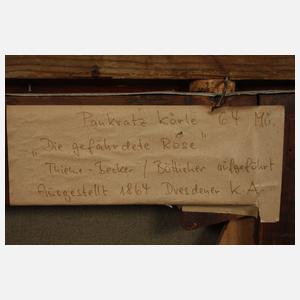 Pankratz Körle 64 Mü.
„Die gefährdete Rose"
Thieme-Becker / Bötticher aufgeführt
Ausgestellt 1864 Dresdener K.A.